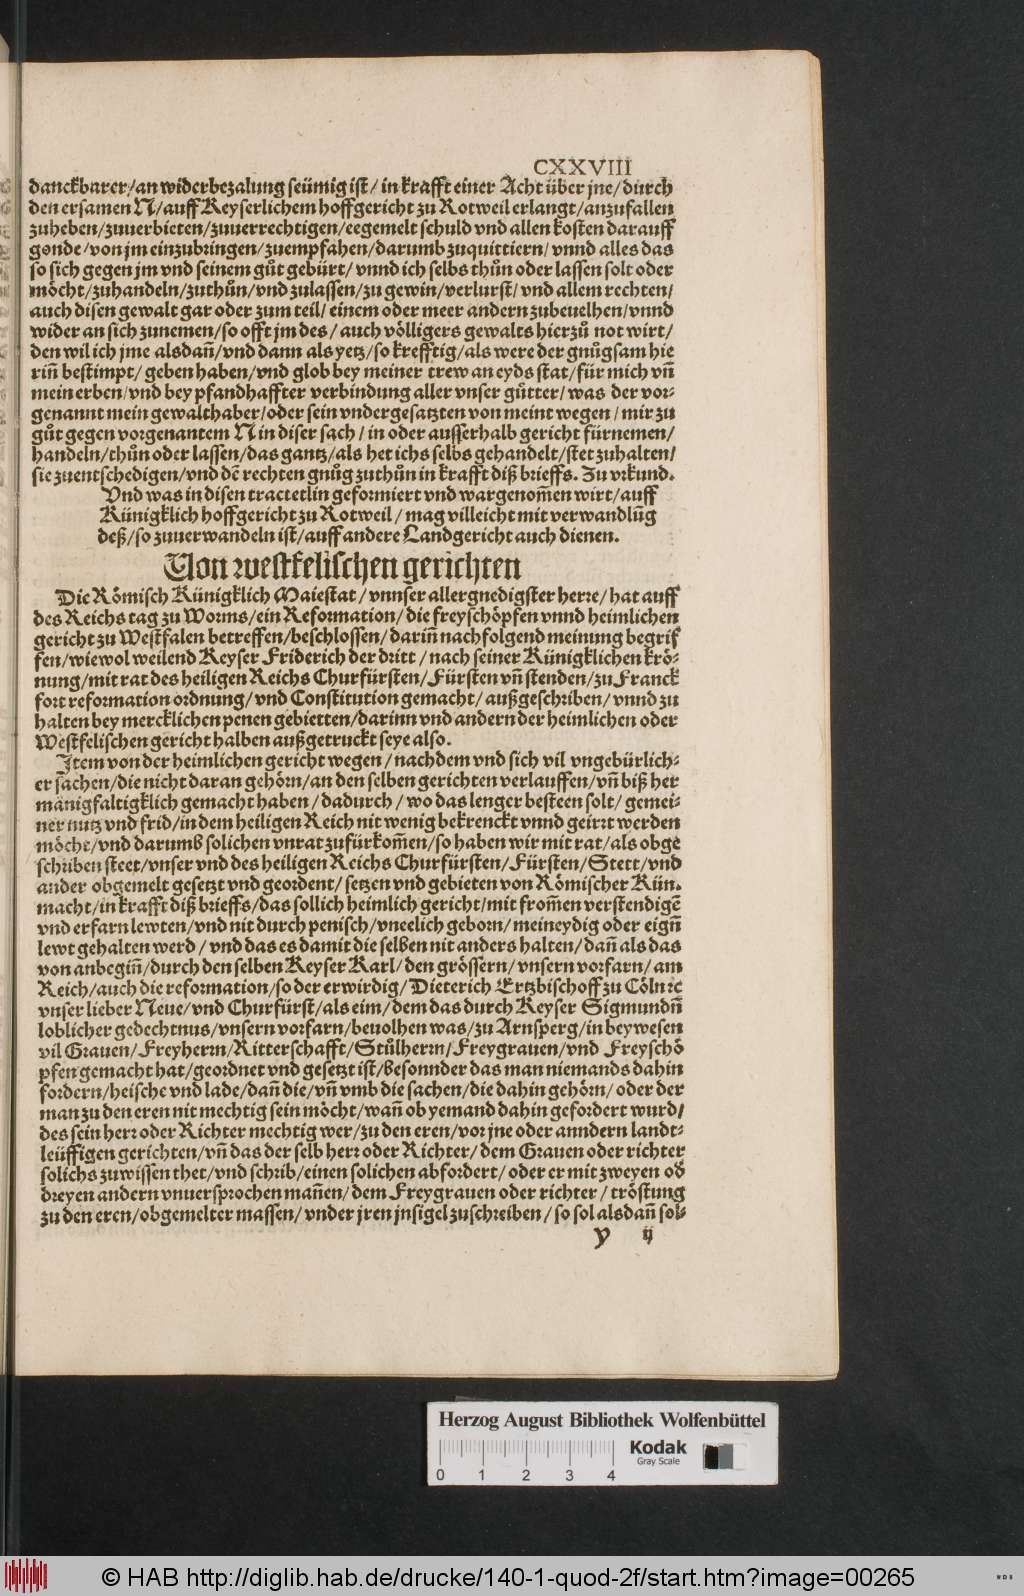 CXXVIII
danckbarer/an widerbezalung seümig ist/ in krafft einer Acht über jne/durch
den ersamen N/auff Keyserlichem hoffgericht zu Rotweil erlangt/anzufallen
zuheben/zuuerbieten/zuuerrechtigen/eegemelt schuld vnd allen kosten darauff
gonde/von jm einzubringen/zuempfahen/darumb zuquittiern/vnnd alles das
so sich gegen jm vnd seinem gůt gebürt/ vnnd ich selbs thůn oder lassen solt oder
möcht/zuhandeln/zuthůn/vnd zulassen/zu gewin/verlurst/ vnd allem rechten/
auch disen gewalt gar oder zum teil/ einem oder meer andern zubeuelhen/vnnd
wider an sich zunemen/so offt jm des/ auch völligers gewalts hierzů not wirt/
den wil ich jme alsdañ/vnd dann als yetz/so krefftig/als were der gnůgsam hie
riñ bestimpt/ geben haben/vnd glob bey meiner trew an eyds stat/für mich vñ
mein erben/vnd bey pfandhaffter verbindung aller vnser gůtter/was der vor-
genannt mein gewalthaber/oder sein vndergesatzten von meint wegen/mir zu
gůt gegen vorgenantem N in diser sach/ in oder ausserhalb gericht fürnemen/
handeln/thůn oder lassen/das gantz/als het ichs selbs gehandelt/stet zuhalten/
sie zuentschedigen/vnd dē rechten gnůg zuthůn in krafft diß brieffs. Zu vrkund.
Vnd was in disen tractetlin geformiert vnd wargenom̃en wirt/auff
Künigklich hoffgericht zu Rotweil/ mag villeicht mit verwandlūg
deß/so zuuerwandeln ist/auff andere Landgericht auch dienen.
Von westfelischen gerichten
Die Römisch Künigklich Maiestat/ vnnser allergnedigster herre/hat auff
des Reichs tag zu Worms/ein Reformation/die freyschöpfen vnnd heimlichen
gericht zu Westfalen betreffen/beschlossen/dariñ nachfolgend meinung begrif
fen/wiewol weilend Keyser Friderich der dritt/nach seiner Künigklichen krö-
nung/mit rat des heiligen Reichs Churfürsten/Fürsten vñ stenden/zu Franck
fort reformation ordnung/vnd Constitution gemacht/außgeschriben/vnnd zu
halten bey mercklichen penen gebietten/darinn vnd andern der heimlichen oder
Westfelischen gericht halben außgetruckt seye also.
Item von der heimlichen gericht wegen/nachdem vnd sich vil vngebürlich-
er sachen/die nicht daran gehörn/an den selben gerichten verlauffen/vñ biß her
mänigfaltigklich gemacht haben/dadurch/wo das lenger besteen solt/gemei-
ner nutz vnd frid/in dem heiligen Reich nit wenig bekrenckt vnnd geirrt werden
möcht/vnd darumb solichen vnrat zufürkom̃en/so haben wir mit rat/als obge
schriben steet/vnser vnd des heiligen Reichs Churfürsten/Fürsten/Stett/vnd
ander obgemelt gesetzt vnd geordent/ setzen vnd gebieten von Römischer Kün.
macht/in krafft diß brieffs/das sollich heimlich gericht/mit from̃en verstendigē
vnd erfarn lewten/vnd nit durch penisch/vneelich geborn/meineydig oder eigñ
lewt gehalten werd/vnd das es damit die selben nit anders halten/dañ als das
von anbegiñ/durch den selben Keyser Karl/den grössern/vnsern vorfarn/am
Reich/auch die reformation/so der erwirdig/Dieterich Ertzbischoff zu Cöln ꝛc
vnser lieber Neue/vnd Churfürst/als eim/dem das durch Keyser Sigmundñ
loblicher gedechtnus/vnsern vorfarn/beuolhen was/zu Arnsperg/in beywesen
vil Grauen/Freyherrn/Ritterschafft/Stůlherrn/Freygrauen/vnd Freyschö
pfen gemacht hat/geordnet vnd gesetzt ist/besonnder das man niemands dahin
fordern/heische vnd lade/dañ die/vñ vmb die sachen/die dahin gehörn/oder der
man zu den eren nit mechtig sein möcht/wañ ob yemand dahin gefordert wurd/
des sein herr oder Richter mechtig wer/zu den eren/vor jne oder anndern landt-
leüffigen gerichten/vñ das der selb herr oder Richter/dem Grauen oder richter
solichs zuwissen thet/vnd schrib/einen solichen abfordert/oder er mit zweyen oð
dreyen andern vnuersprochen mañen/dem Freygrauen oder richter/tröstung
zu den eren/obgemelter massen/vnder jren jnsigel zuschreiben/so sol alsdañ sol-
y ij
Herzog August Bibliothek Wolfenbüttel
Kodak
Gray Scale
0 1 2 3 4
© HAB http://diglib.hab.de/drucke/140-1-quod-2f/start.htm?image=00265